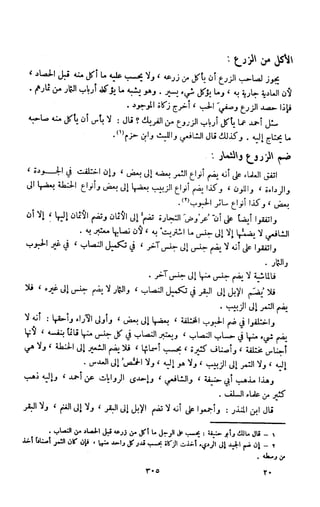 الأكل من الزرع :
يجوز لصاحب الزرع أن يأكل من زرعه ، ولا يحسب عليه ما أكل منه قبل الحصاد ،
لأن العادة جارية به ، وما يؤكل شيء يسير . وهو يشبه ما يؤكله أرباب الثمار من ثمارهم .
فإذا حصد الزرع وصفي الحب ، أخرج زكاة الموجود .
سئل أحمد عما يأكل أرباب الزروع من الفريك ؟ قال : لا بأس أن يأكل منه صاحبه
ما يحتاج إليه . وكذلك قال الشافعي والليث وابن حزم(١) .
ضم الزروع والثمار :
اتفق العلماء على أنه يضم أنواع الثمر بعضه إلى بعض ، وإن اختلفت في الجودة ،
والرداءة ، واللون ، وكذا يضم أنواع الزبيب بعضها إلى بعض وأنواع الحنطة بعضها إلى
بعض ، وكذا أنواع سائر الحبوب(٢) .
واتفقوا أيضا على أن عروض التجارة تضم إلى الأثمان وتضم الأثمان إليها ، إلا أن
الشافعي لا يضمها إلا إلى جنس ما اشتريت به ، لأن نصابها معتبر به .
واتفقوا على أنه لا يضم جنس إلى جنس آخر ، في تكميل النصاب ، في غير الحبوب
والثمار .
فالماشية لا يضم جنس منها إلى جنس آخر .
فلا يضم الإبل إلى البقر في تكميل النصاب ، والثمار لا يضم جنس إلى غيره ، فلا
يضم التمر إلى الزبيب .
واختلفوا في ضم الحبوب المختلفة ، بعضها إلى بعض ، وأولى الآراء وأحقها : أنه لا
يضم شيء منها في حساب النصاب ، ويعتبر النصاب في كل جنس منها قائما بنفسه ، لأنها
أجناس مختلفة ، وأصناف كثيرة ، بحسب أسمائها ، فلا يضم الشعير إلى الحنطة ، ولا هي
إليه ، ولا التمر إلى الزبيب ، ولا هو إليه ، ولا الحمص إلى العدس .
وهذا مذهب أبي حنيفة ، والشافعي ، وإحدى الروايات عن أحمد ، وإليه ذهب
كثير من علماء السلف .
قال ابن المنذر : وأجمعوا على أنه لا تضم الإبل إلى البقر ، ولا إلى الغنم ، ولا البقر
١ - قال مالك وأبو حنيفة : يحسب على الرجل ما أكل من زرعه قبل الحصاد من النصاب .
٢ - إن ضم الجيد إلى الرديء أخذت الزكاة بحسب قدر كل واحد منها ، فإن كان الثمر أصنافا أخذ
من وسطه .
٣٠٥
٢٠